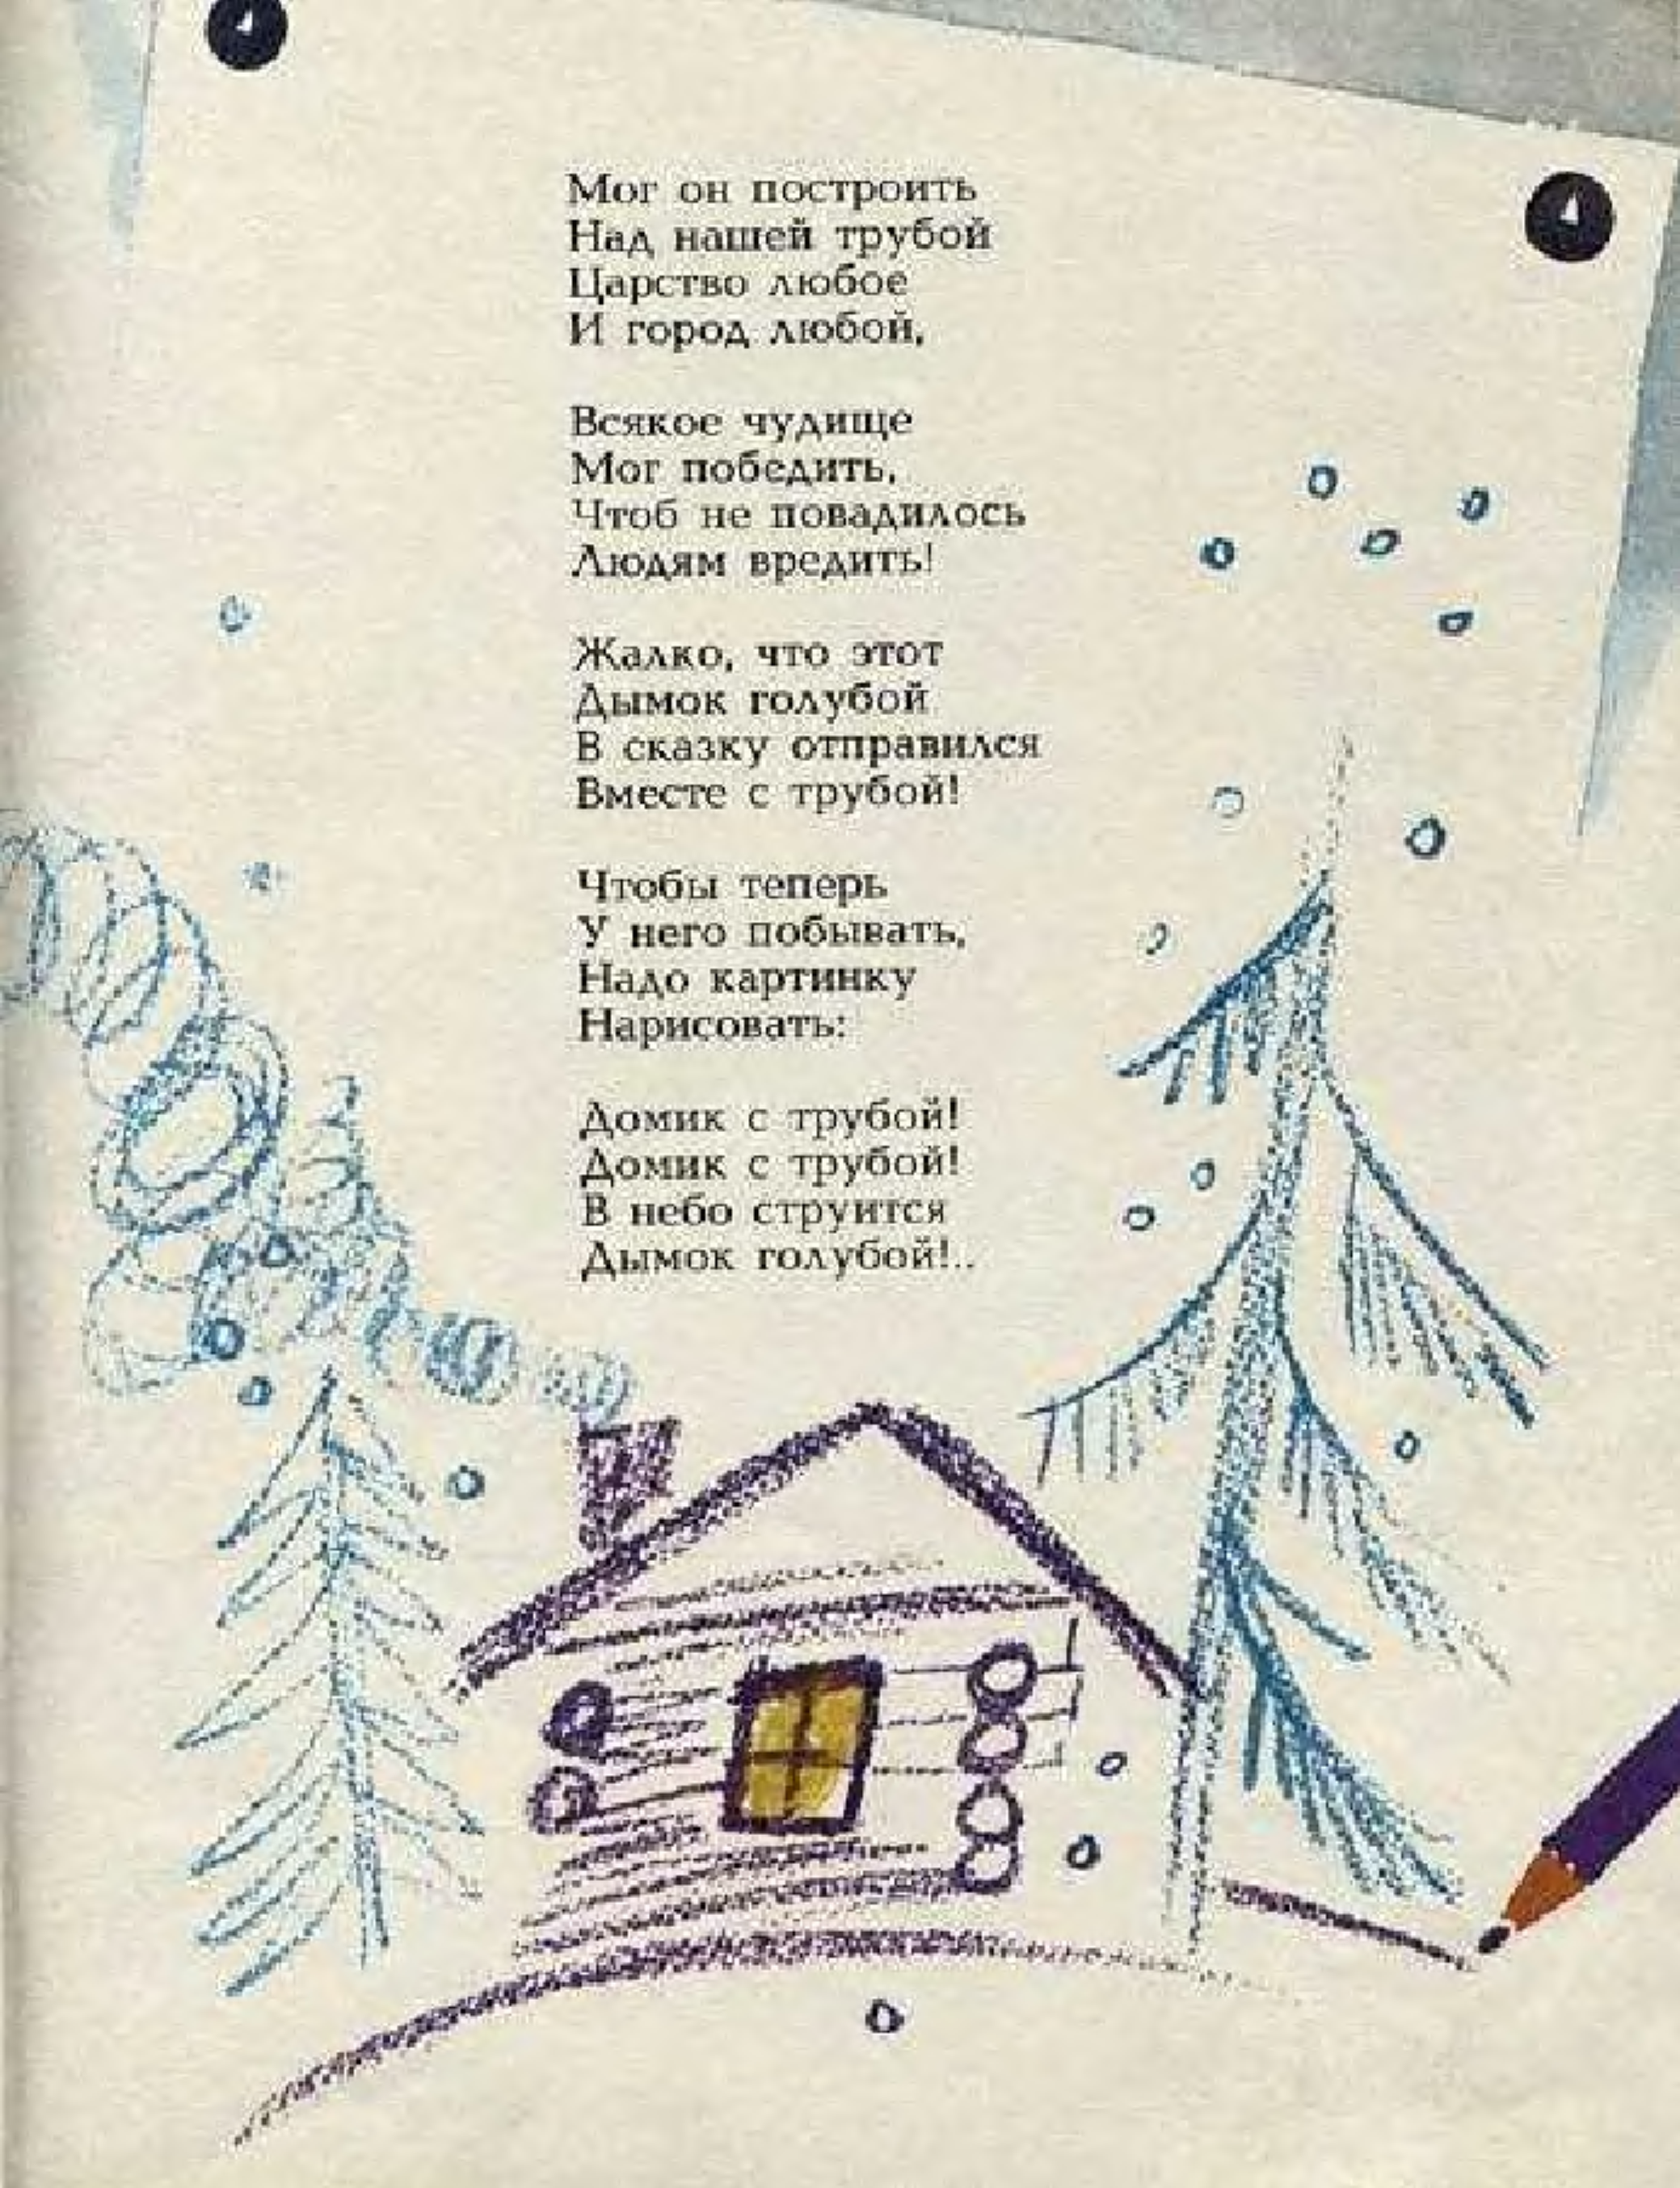 Мог он построить
Над нашей трубой
Царство любое
И город любой,
Всякое чудище
Мог победить,
Чтоб не повадилось
Людям вредить!
Жалко, что этот
Дымок голубой
В сказку отправился
Вместе с трубой!
Чтобы теперь
У него побывать,
Надо картинку
Нарисовать:
Домик с трубой!
Домик с трубой!
В небо струится
Дымок голубой!..